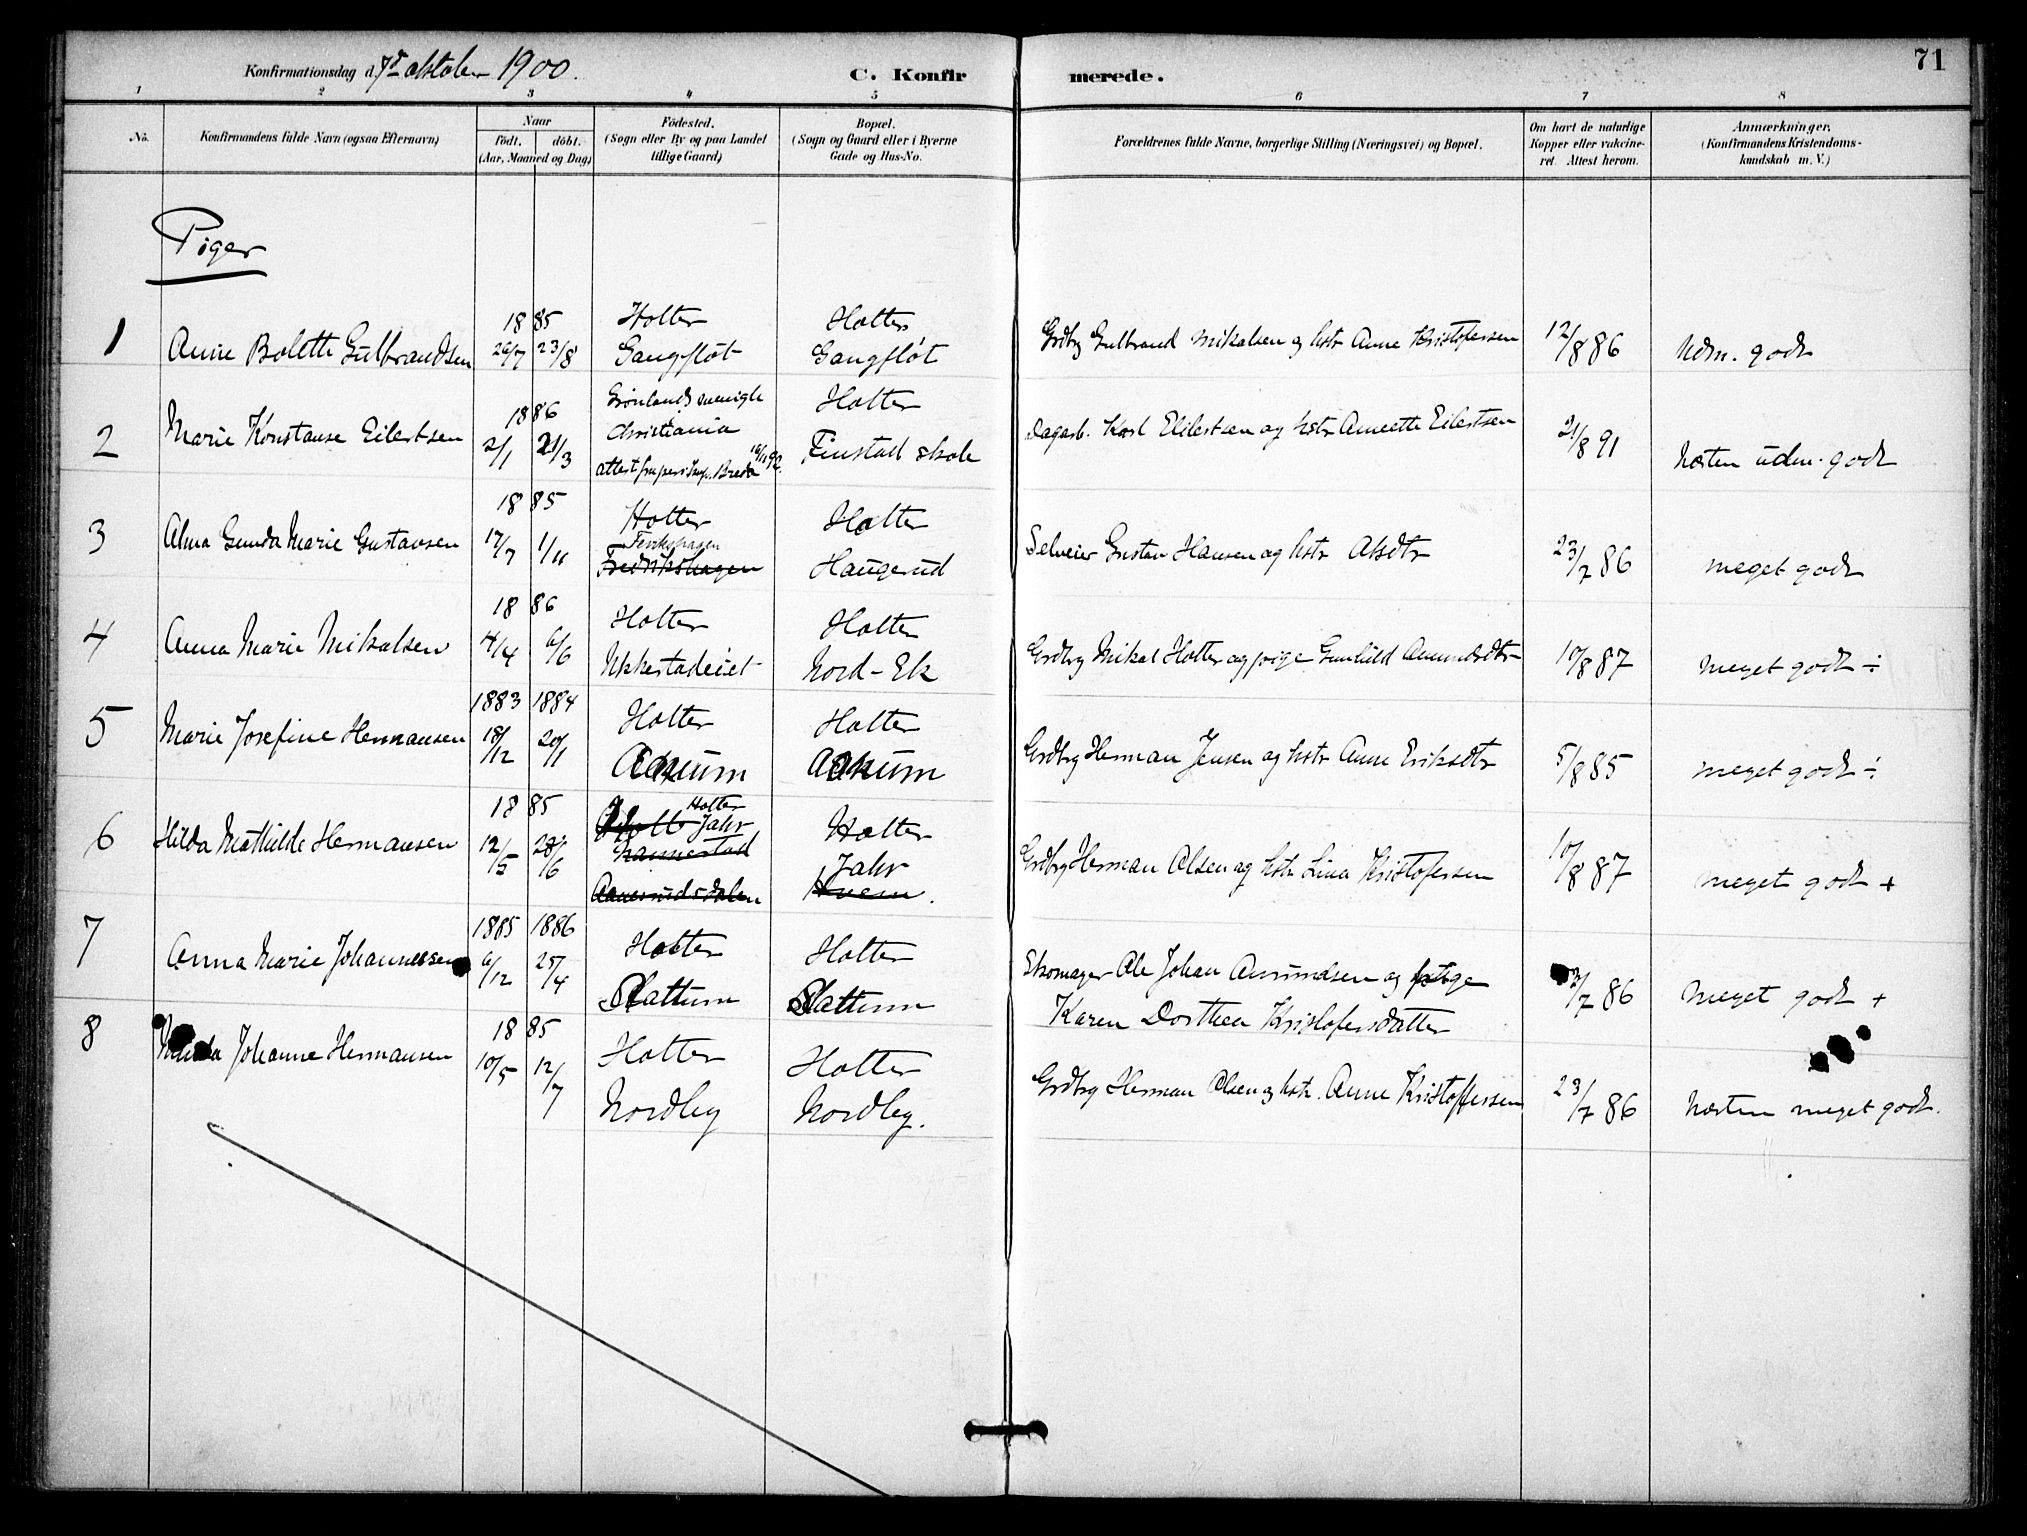 Konfirmationsdag d. 7de oktober 1900.
C. Konfir merede.
71
1 2 3 4 5 6 7 8
No.
Konfirmandens fulde Navn (ogsaa Efternavn)
Naar
födt. döbt.
(Aar, Maaned og Dag)
Födested.
(Sogn eller By og paa Landet
tillige Gaard)
Bopæl.
(Sogn og Gaard eller i Byerne
Gade og Hus-No.
Forældrenes fulde Navne, borgerlige Stilling (Næringsvei) og Bopæl.
Om havt de naturlige
Kopper eller vakcine-
ret. Attest herom.
Anmærkninger.
(Konfirmandens Kristendoms-
kundskab m. V.)
Piger
1885 Holter Holter
1 Anne Bolette Gulbrandsen 26/7 23/8 Gangfløt Gangfløt Grdbr Gulbrand Mikalsen og hstr Anne Kristofersen 12/8 86 Udm. godt
1886 Grönlands menigh Holter
2 Marie Konstanse Eilertsen 2/1 21/3 Christiania Finstad skole Dagarb. Karl Eilertsen og hstr Annette Eilertsen 21/8 91 Næsten udm. godt
attest fra
1885 Holter Holter
3 Alma Gunda Marie Gustavsen 17/7 1/11 Fredrikshagen Haugerud Selveier Gustav Hansen og hstr Olsdtr 23/7 86 meget godt
1886 Holter Holter
4 Anna Marie Mikalsen 4/4 6/6 Ukkestadeiet Nord-Ek Grdbr Mikal Holter og pige Gunhild Amundsdtr 10/8 87 Meget godt ÷
1883 1884 Holter Holter
5 Marie Josefine Hermansen 18/12 20/1 Aanum Aanum Grdbr Herman Jensen og hstr Anne Eriksdtr 5/8 85 meget godt ÷
1885 Holter Jahr Holter
6 Hilda Mathilde Hermansen 12/5 28/6 Nannestad Jahr Grdbr Herman Olsen og hstr Lina Kristofersen 10/8 87 meget godt +
Aanerudsdalen
1885 1886 Holter Holter
7 Anna Marie Johannessen 6/12 25/4 Slattum Slattum Skomager Ole Johan Amundsen og pige
Karen Dorthea Kristofersdatter /7 86 Meget godt +
1885 Holter Holter
8 Johanne Hermansen 10/5 12/7 Nordby Nordby. Grdbr Herman Olsen og hstr. Anne Kristoffersen 23/7 86 Næsten meget godt.